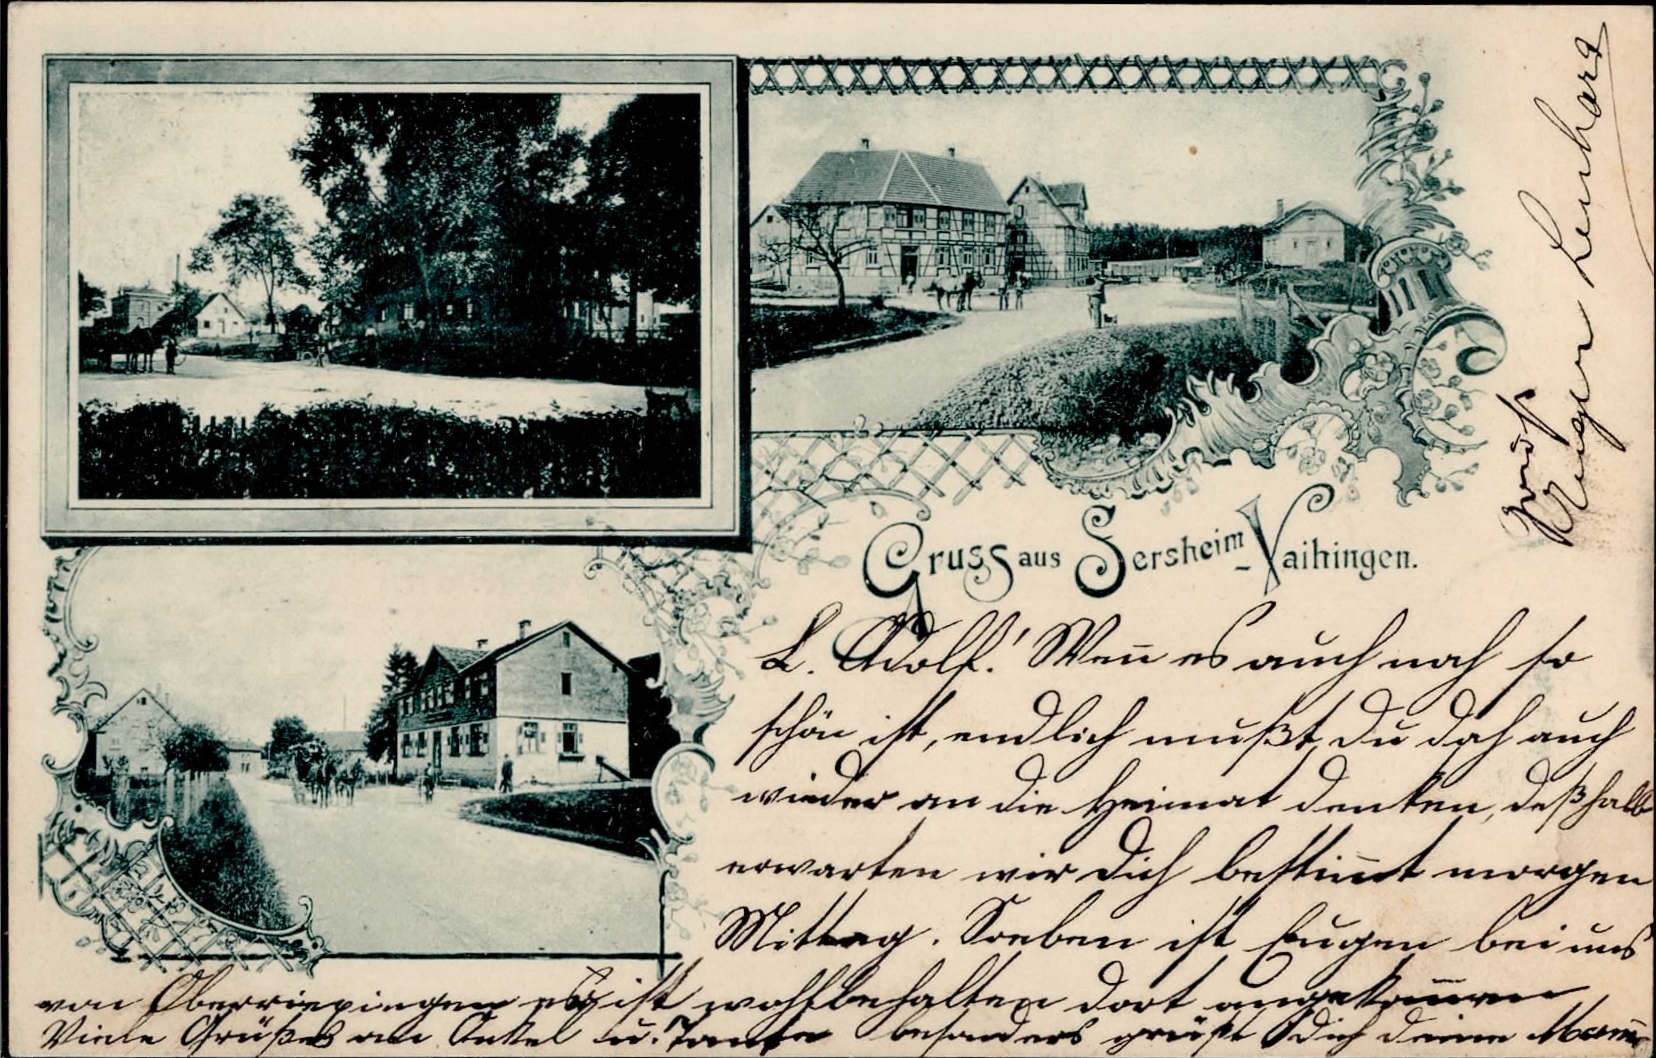 Gruss aus Sersheim-Vaihingen.
L. Adolf! Wen̄ es auch noch so
schön ist, endlich mußt Du doch auch
wieder an die Heimat denken, deßhalb
erwarten wir Dich bestim̄t morgen
Mittag. Soeben ist Eugen bei uns
von Oberriexingen ist wohlbehalten dort angekom̄en
Viele Grüße an Onkel u. Tante besonders grüßt Dich deine Mam̄a
Gruß
Eugen Lenhard